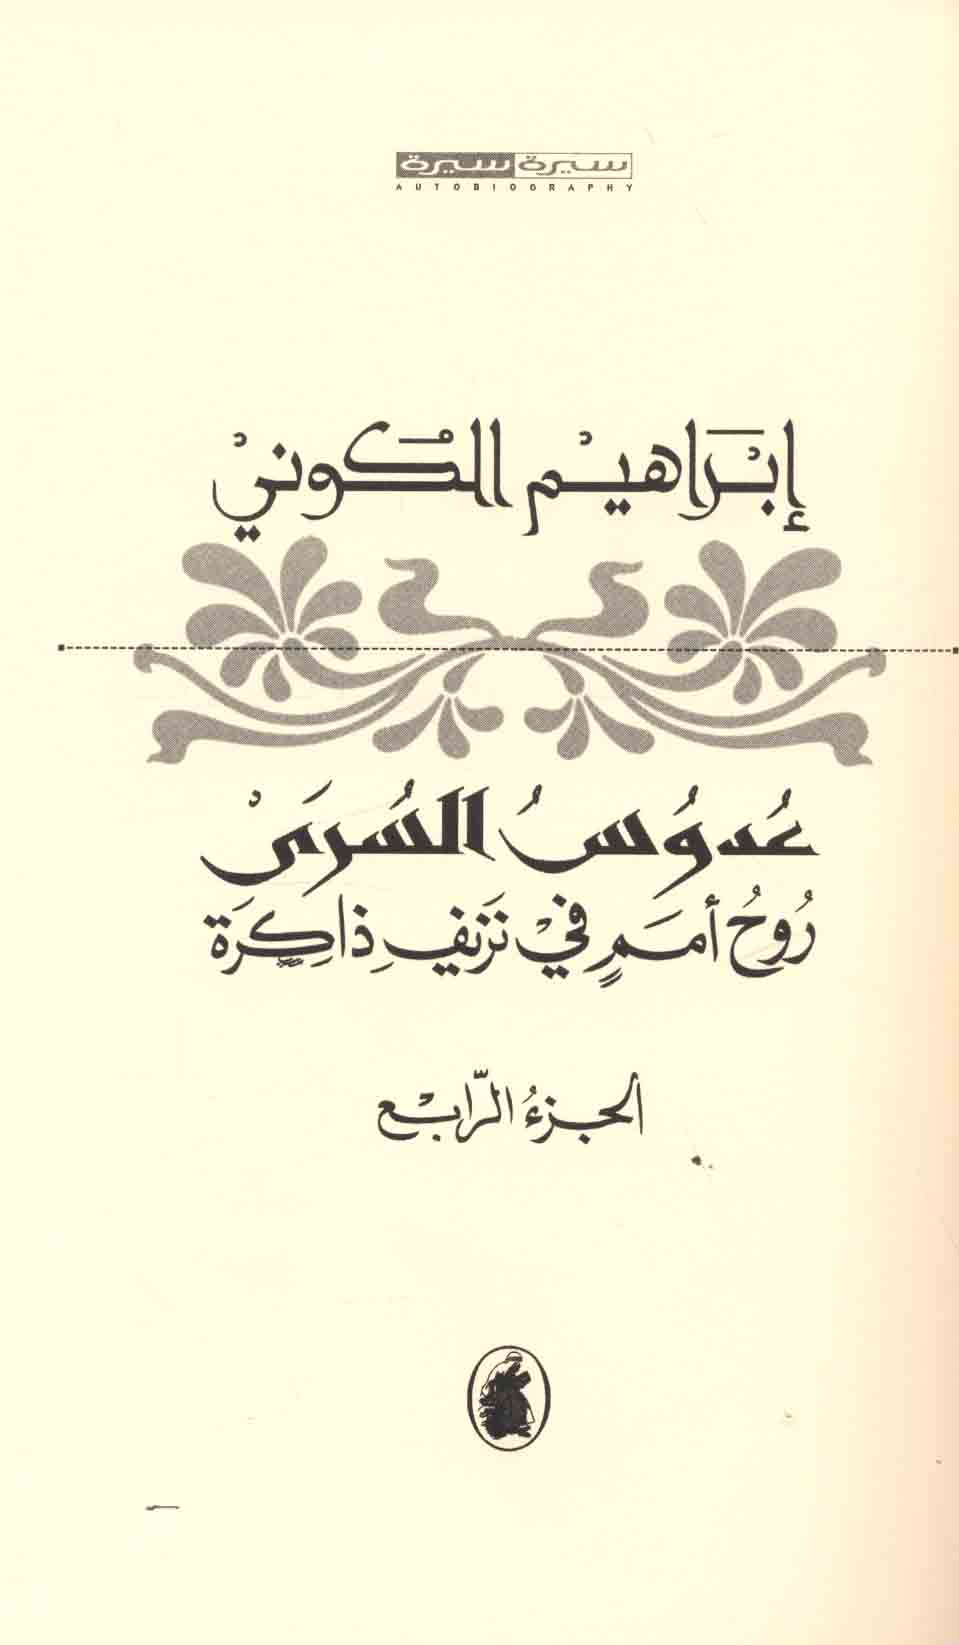 سيرة سيرة
AUTOBIOGRAPHY
إبْرَاهيم الكُونيْ
عُدوُسُ السُرَىْ
رُوحُ أممٍ فيْ نَزيفِ ذاكِرَة
الجزءُ الرّابْع